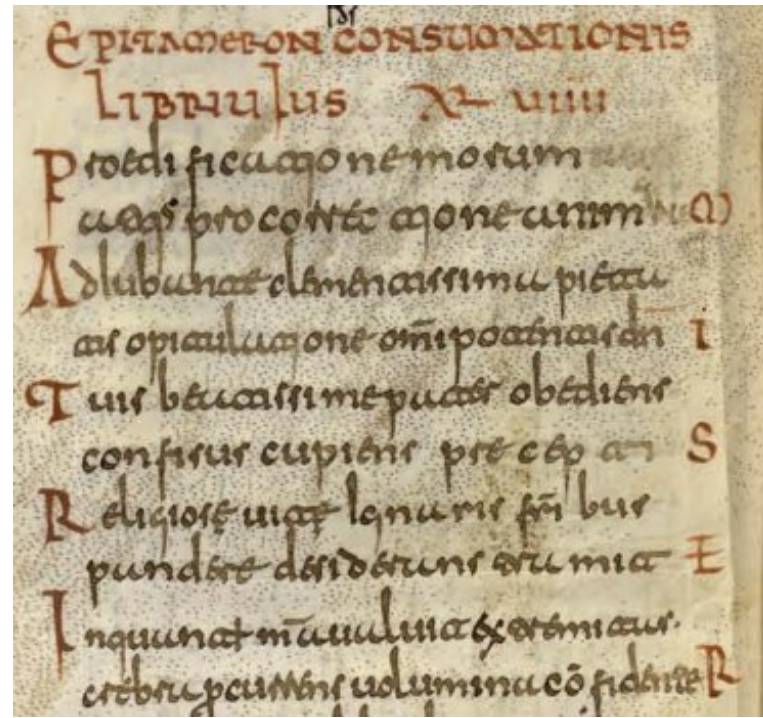 EPITAMERON CONSUMATIONIS
LIBRULUS XL VIIII
Pro edificatione morum
pro correctione anim M
Adiubante clementissima pieta
tis opitulatione omipotentis dni I
Tuis beatissime pater obediens
confisus cupiens precep S
Religiosę uitę ignaris fribus
pandere desiderans E
In quantum
crebra pcurrens uolumina cōfidenter R